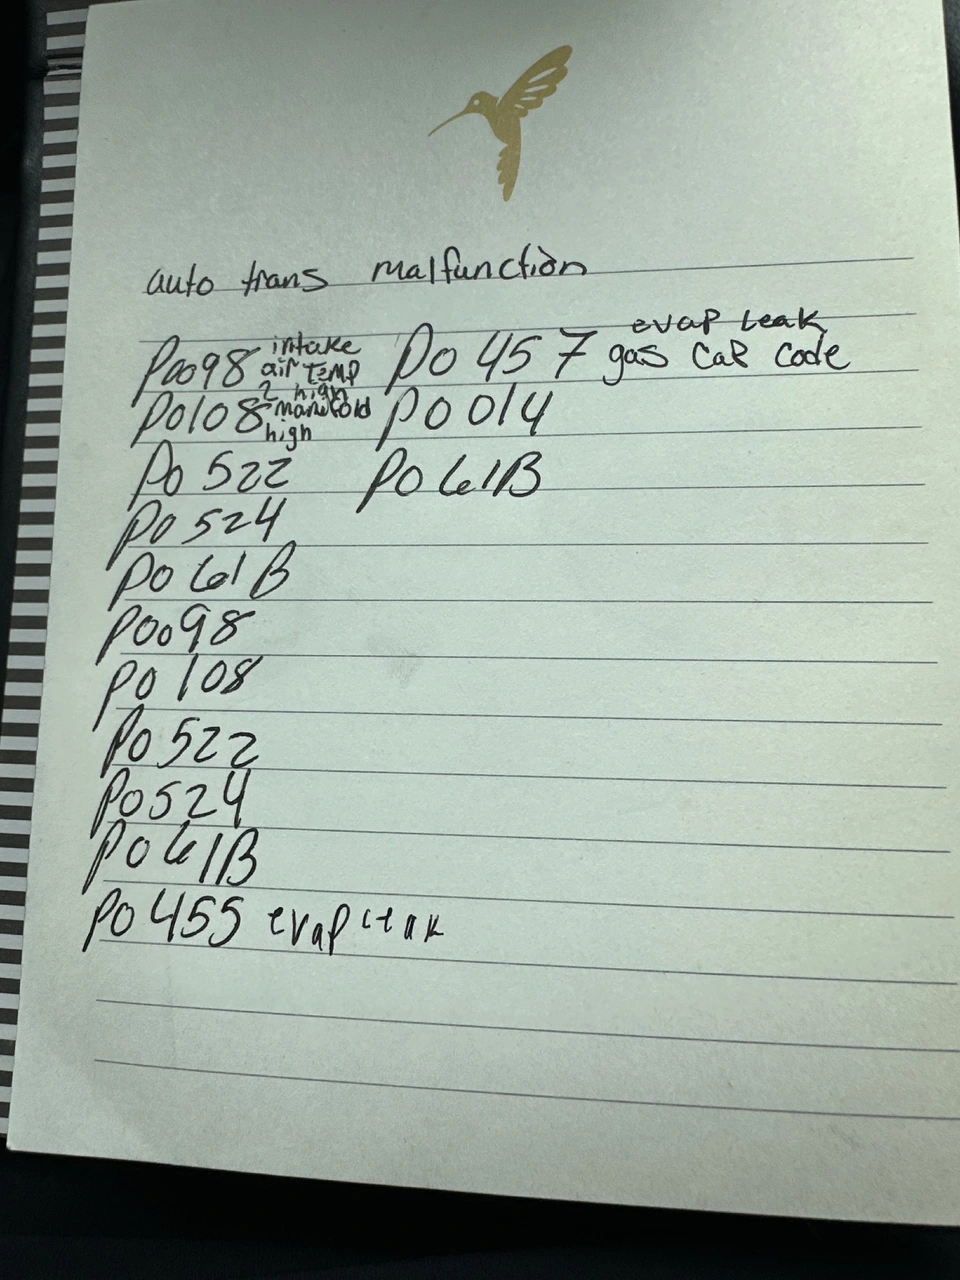 auto trans malfunction
P0098 intake air temp 2 high
P0108 manifold high
P0522
P0524
P061B
P0098
P0108
P0522
P0524
P061B
P0455 evap leak
P0457 evap leak gas cap code
P0014
P061B